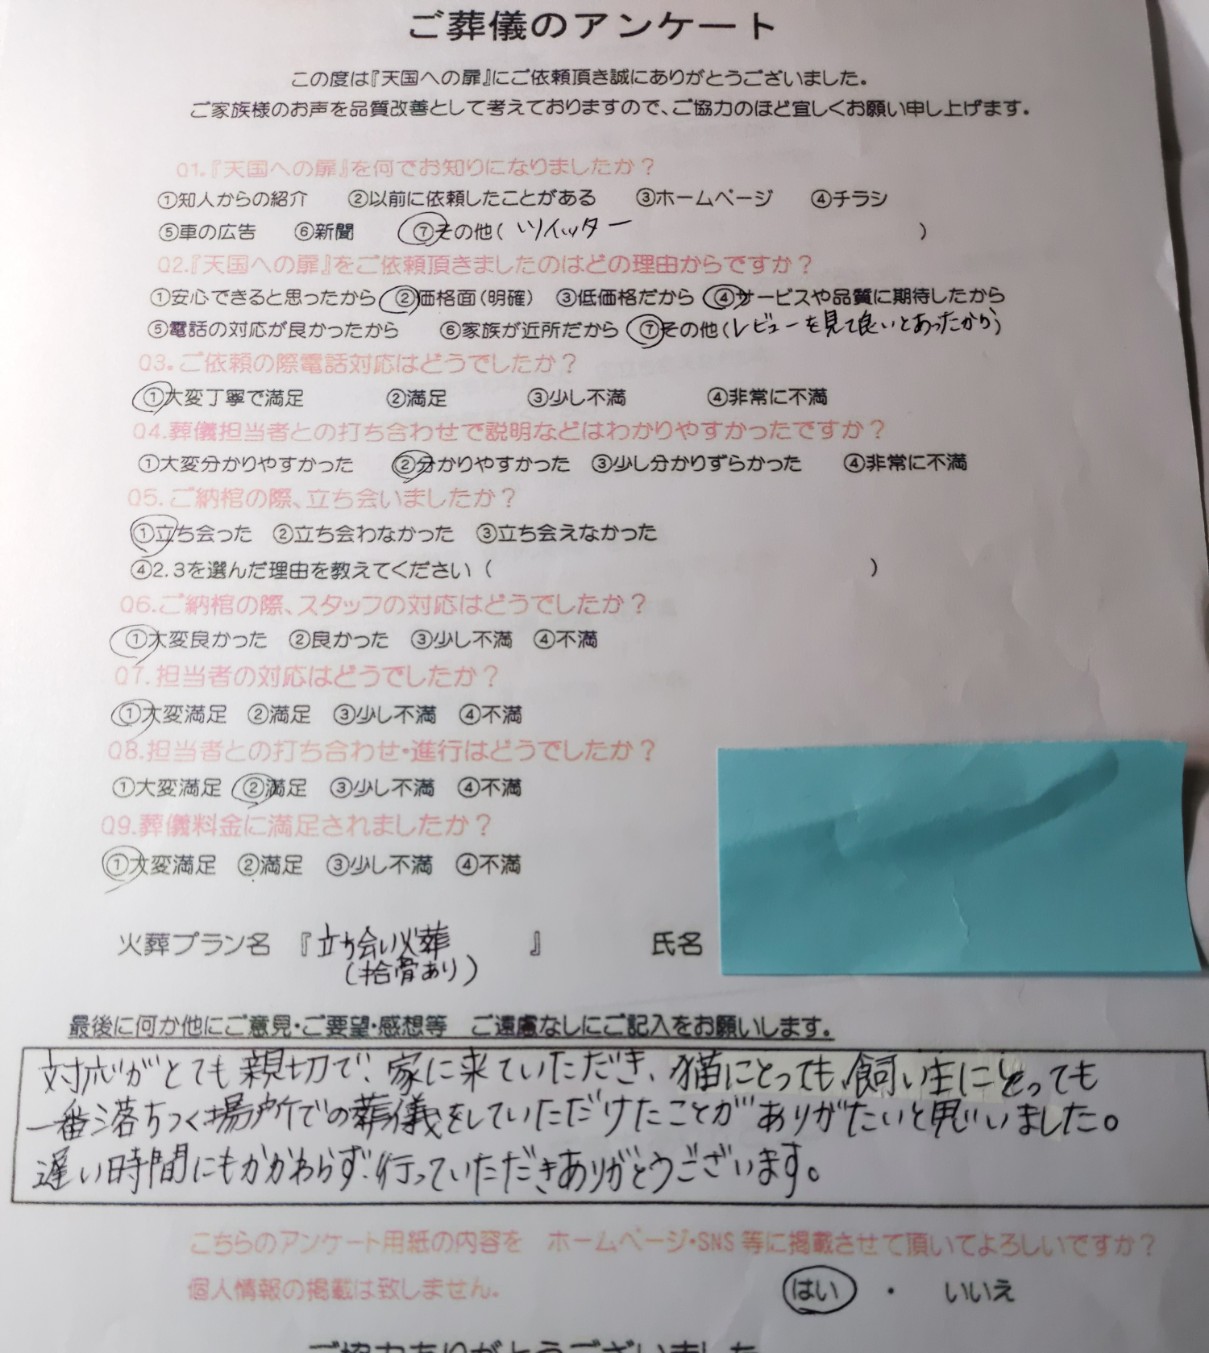 ご葬儀のアンケート
この度は『天国への扉』にご依頼頂き誠にありがとうございました。
ご家族様のお声を品質改善として考えておりますので、ご協力のほど宜しくお願い申し上げます。
Q1.『天国への扉』を何でお知りになりましたか？
①知人からの紹介 ②以前に依頼したことがある ③ホームページ ④チラシ
⑤車の広告 ⑥新聞 ⑦その他( ツイッター )
Q2.『天国への扉』をご依頼頂きましたのはどの理由からですか？
①安心できると思ったから ②価格面(明確) ③低価格だから ④サービスや品質に期待したから
⑤電話の対応が良かったから ⑥家族が近所だから ⑦その他(レビューを見て良いとあったから)
Q3.ご依頼の際電話対応はどうでしたか？
①大変丁寧で満足 ②満足 ③少し不満 ④非常に不満
Q4.葬儀担当者との打ち合わせで説明などはわかりやすかったですか？
①大変分かりやすかった ②分かりやすかった ③少し分かりずらかった ④非常に不満
Q5.ご納棺の際、立ち会いましたか？
①立ち会った ②立ち会わなかった ③立ち会えなかった
④2.3を選んだ理由を教えてください( )
Q6.ご納棺の際、スタッフの対応はどうでしたか？
①大変良かった ②良かった ③少し不満 ④不満
Q7.担当者の対応はどうでしたか？
①大変満足 ②満足 ③少し不満 ④不満
Q8.担当者との打ち合わせ・進行はどうでしたか？
①大変満足 ②満足 ③少し不満 ④不満
Q9.葬儀料金に満足されましたか？
①大変満足 ②満足 ③少し不満 ④不満
火葬プラン名 『立ち会い火葬 』 氏名
(拾骨あり)
最後に何か他にご意見・ご要望・感想等 ご遠慮なしにご記入をお願いします。
対応がとても親切で、家に来ていただき、猫にとっても、飼い主にとっても
一番落ちつく場所での葬儀をしていただけたことがありがたいと思いました。
遅い時間にもかかわらず、行っていただきありがとうございます。
こちらのアンケート用紙の内容を ホームページ・SNS等に掲載させて頂いてよろしいですか？
個人情報の掲載は致しません。 はい ・ いいえ
ご協力ありがとうございました